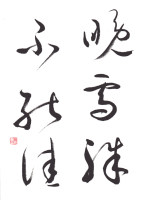 晚雪殊
不能佳